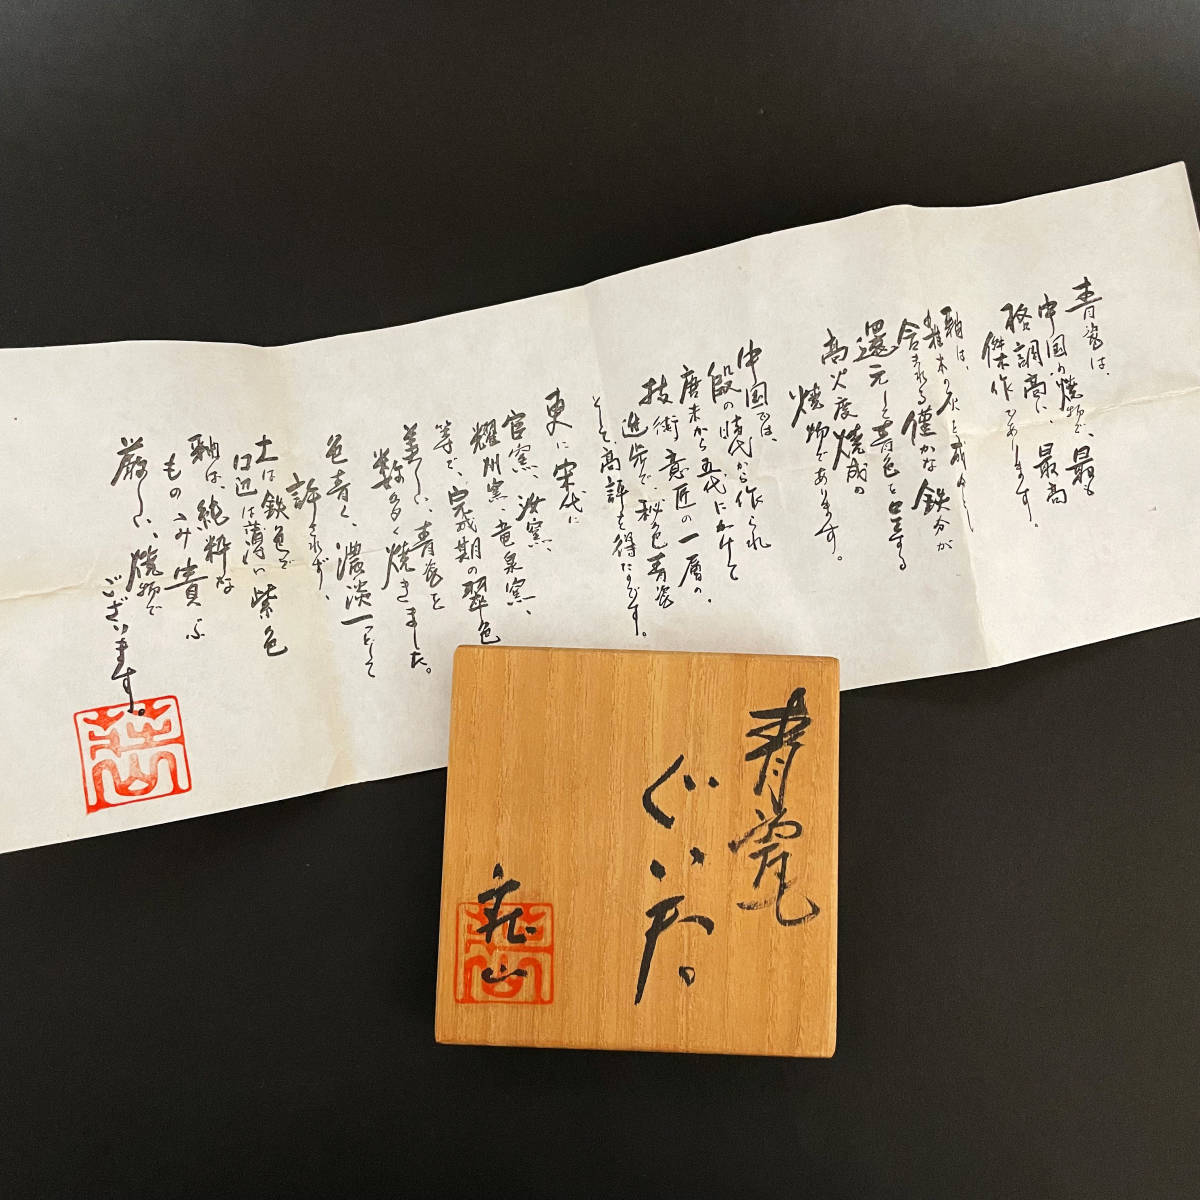 青瓷は、
中国の焼物で、最も
格調高い、最高
傑作であります。
釉は、
雑木の灰を
含まれる僅かな鉄分が
還元して青色を呈する
高火度焼成の
焼物であります。
中国では、
殷の時代から作られ
唐末から五代にかけて
技術意匠の一層の、
進歩で秘色青瓷
そして高評を得たのです。
更に宋代に
官窯、汝窯、
耀州窯、竜泉窯、
等で、完成期の翠色
美しい、青瓷を
数多く焼きました。
色青く、濃淡一つとして
許されず、
土は鉄色で
口辺は薄い紫色
釉は、純粋な
もののみ貴ぶ
厳しい、焼物で
ございます。
青瓷
ぐい呑